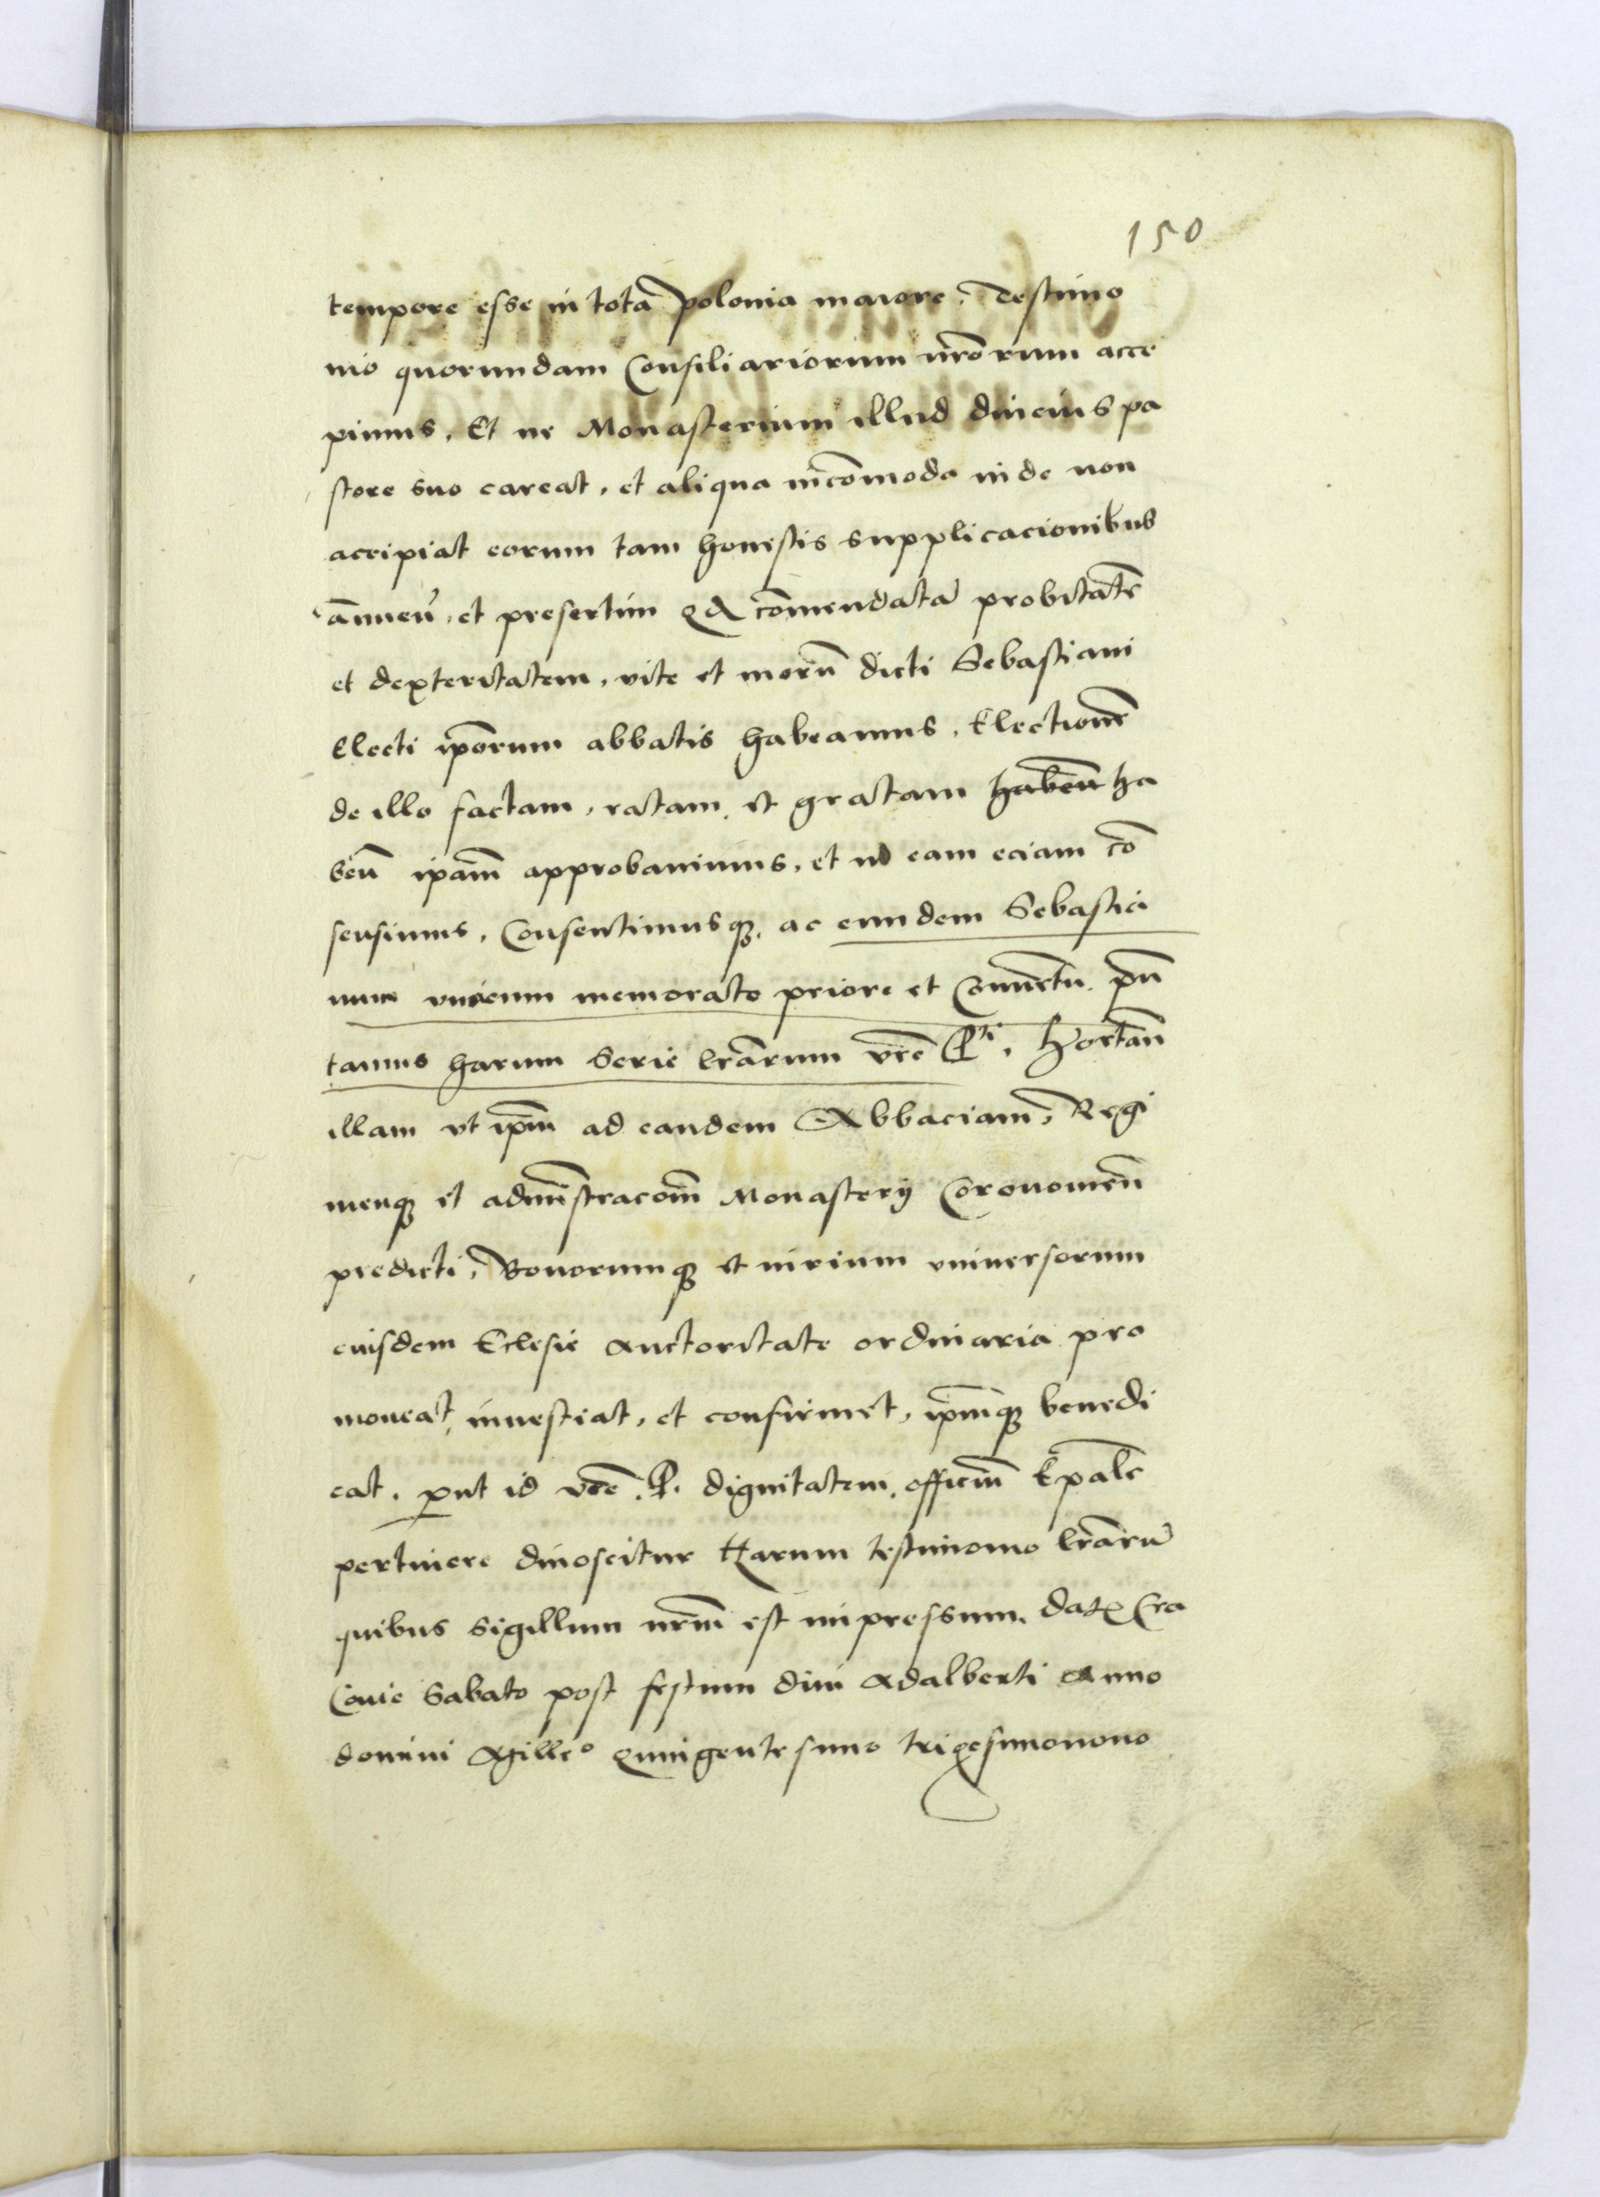 150
tempore esse in totā polonia maiore. Testimo
nio quorundam Consiliariorum nr̄orum acce
pimus. Et ne Monasterium illud diucius pa
store suo careat. et aliqua incōmoda inde non
accipiat eorum tam honestis supplicacionibus
ānuen̄. et presertim cōmendatā probitatē
et dexteritatem. vite et morū dicti Sebastiani
Electi ip̄orum abbatis habeamus. Electionē
de illo factam. ratam et gratam haben̄ ha
ben̄ ip̄am approbauimus. et in eam eciam cō
sensimus. Consentimusq3. ac eundem Sebastia
num vnacum memorato priore et Conuentu. p̄n
tamus harum Serie lr̄arum vr̄e P^ti. Hortan̄
illam vt ip̄m ad eandem Abbaciam, Regi
menq3 et admīstracōm Monasterij Coronowen̄
predicti. Bonorumq3 et iurium vniuersorum
eiusdem Eclesie auctoritate ordinaria pro
moueat inuestiat. et confirmet. ip̄mq3 benedi
cat. put id vr̄e. P. dignitatem. officiū Ep̄ale
pertinere dinoscitur Harum testimonio lr̄arū
quibus Sigillum nr̄m est impressum. Dat Cra
Couie Sabato post festum diui Adalberti Anno
domini Mille° Quingentesimo trigesimonono